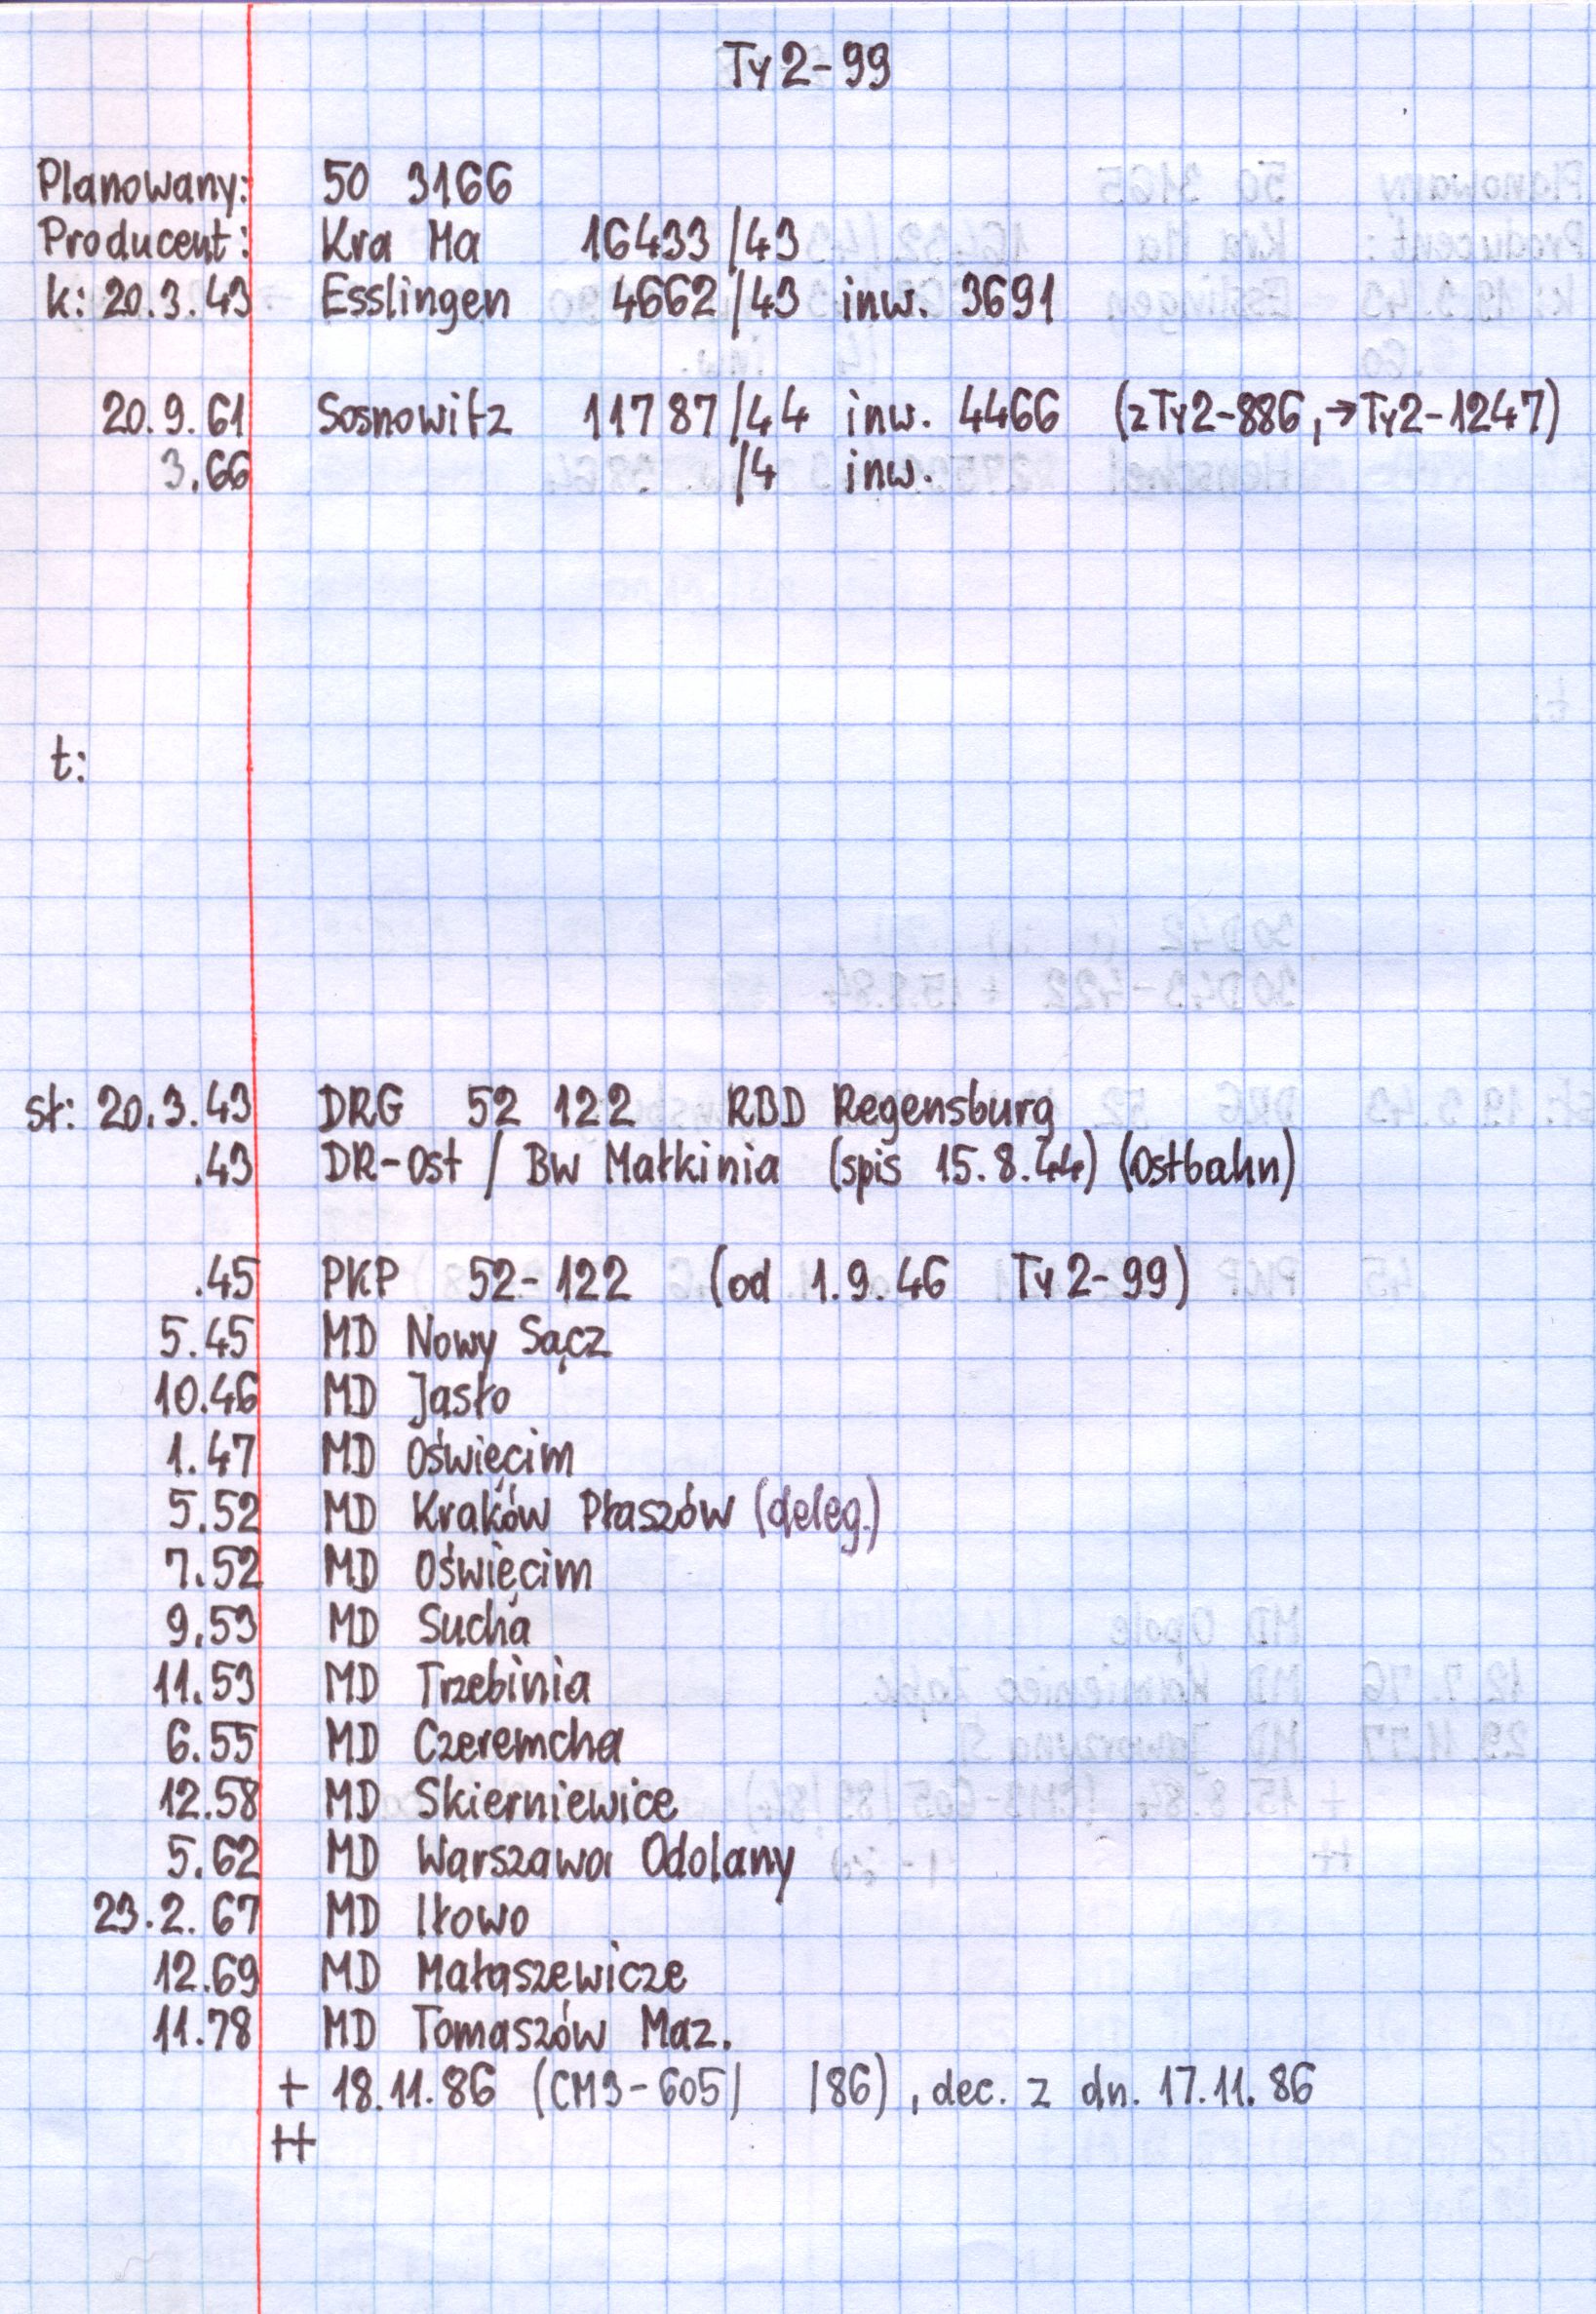 Ty2-99
Planowany: 50 3166
Producent: Kra Ma 16433/43
k: 20.3.43 Esslingen 4662/43 inw. 3691
20.9.61 Sosnowitz 11787/44 inw. 4466 (z Ty2-886, →Ty2-1247)
3.66 /4 inw.
t:
st: 20.3.43 DRG 52 122 RBD Regensburg
.43 DR-Ost / Bw Małkinia (spis 15.8.44) (Ostbahn)
.45 PKP 52-122 (od 1.9.46 Ty2-99)
5.45 MD Nowy Sącz
10.46 MD Jasło
1.47 MD Oświęcim
5.52 MD Kraków Płaszów (deleg.)
7.52 MD Oświęcim
9.53 MD Sucha
11.53 MD Trzebinia
6.55 MD Czeremcha
12.58 MD Skierniewice
5.62 MD Warszawa Odolany
23.2.67 MD Iłowo
12.69 MD Małaszewicze
11.78 MD Tomaszów Maz.
+ 18.11.86 (CM3-605/ /86), dec. z dn. 17.11.86
++